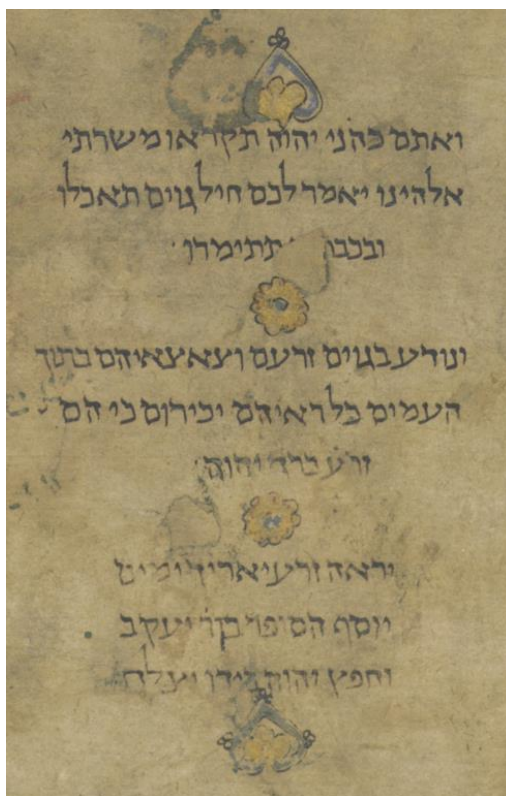 ואתם כהני יהוה תקראו משרתי
אלהינו יאמר לכם חיל גוים תאכלו
תתימרו
ונודע בגוים זרעם וצאצאיהם בתוך
העמים כל ראיהם יכירום כי הם
זרע ברך יהוה
יראה זרע יאריך ימים
יוסף הסופר יעקב
וחפץ יהוה בידו יצלח